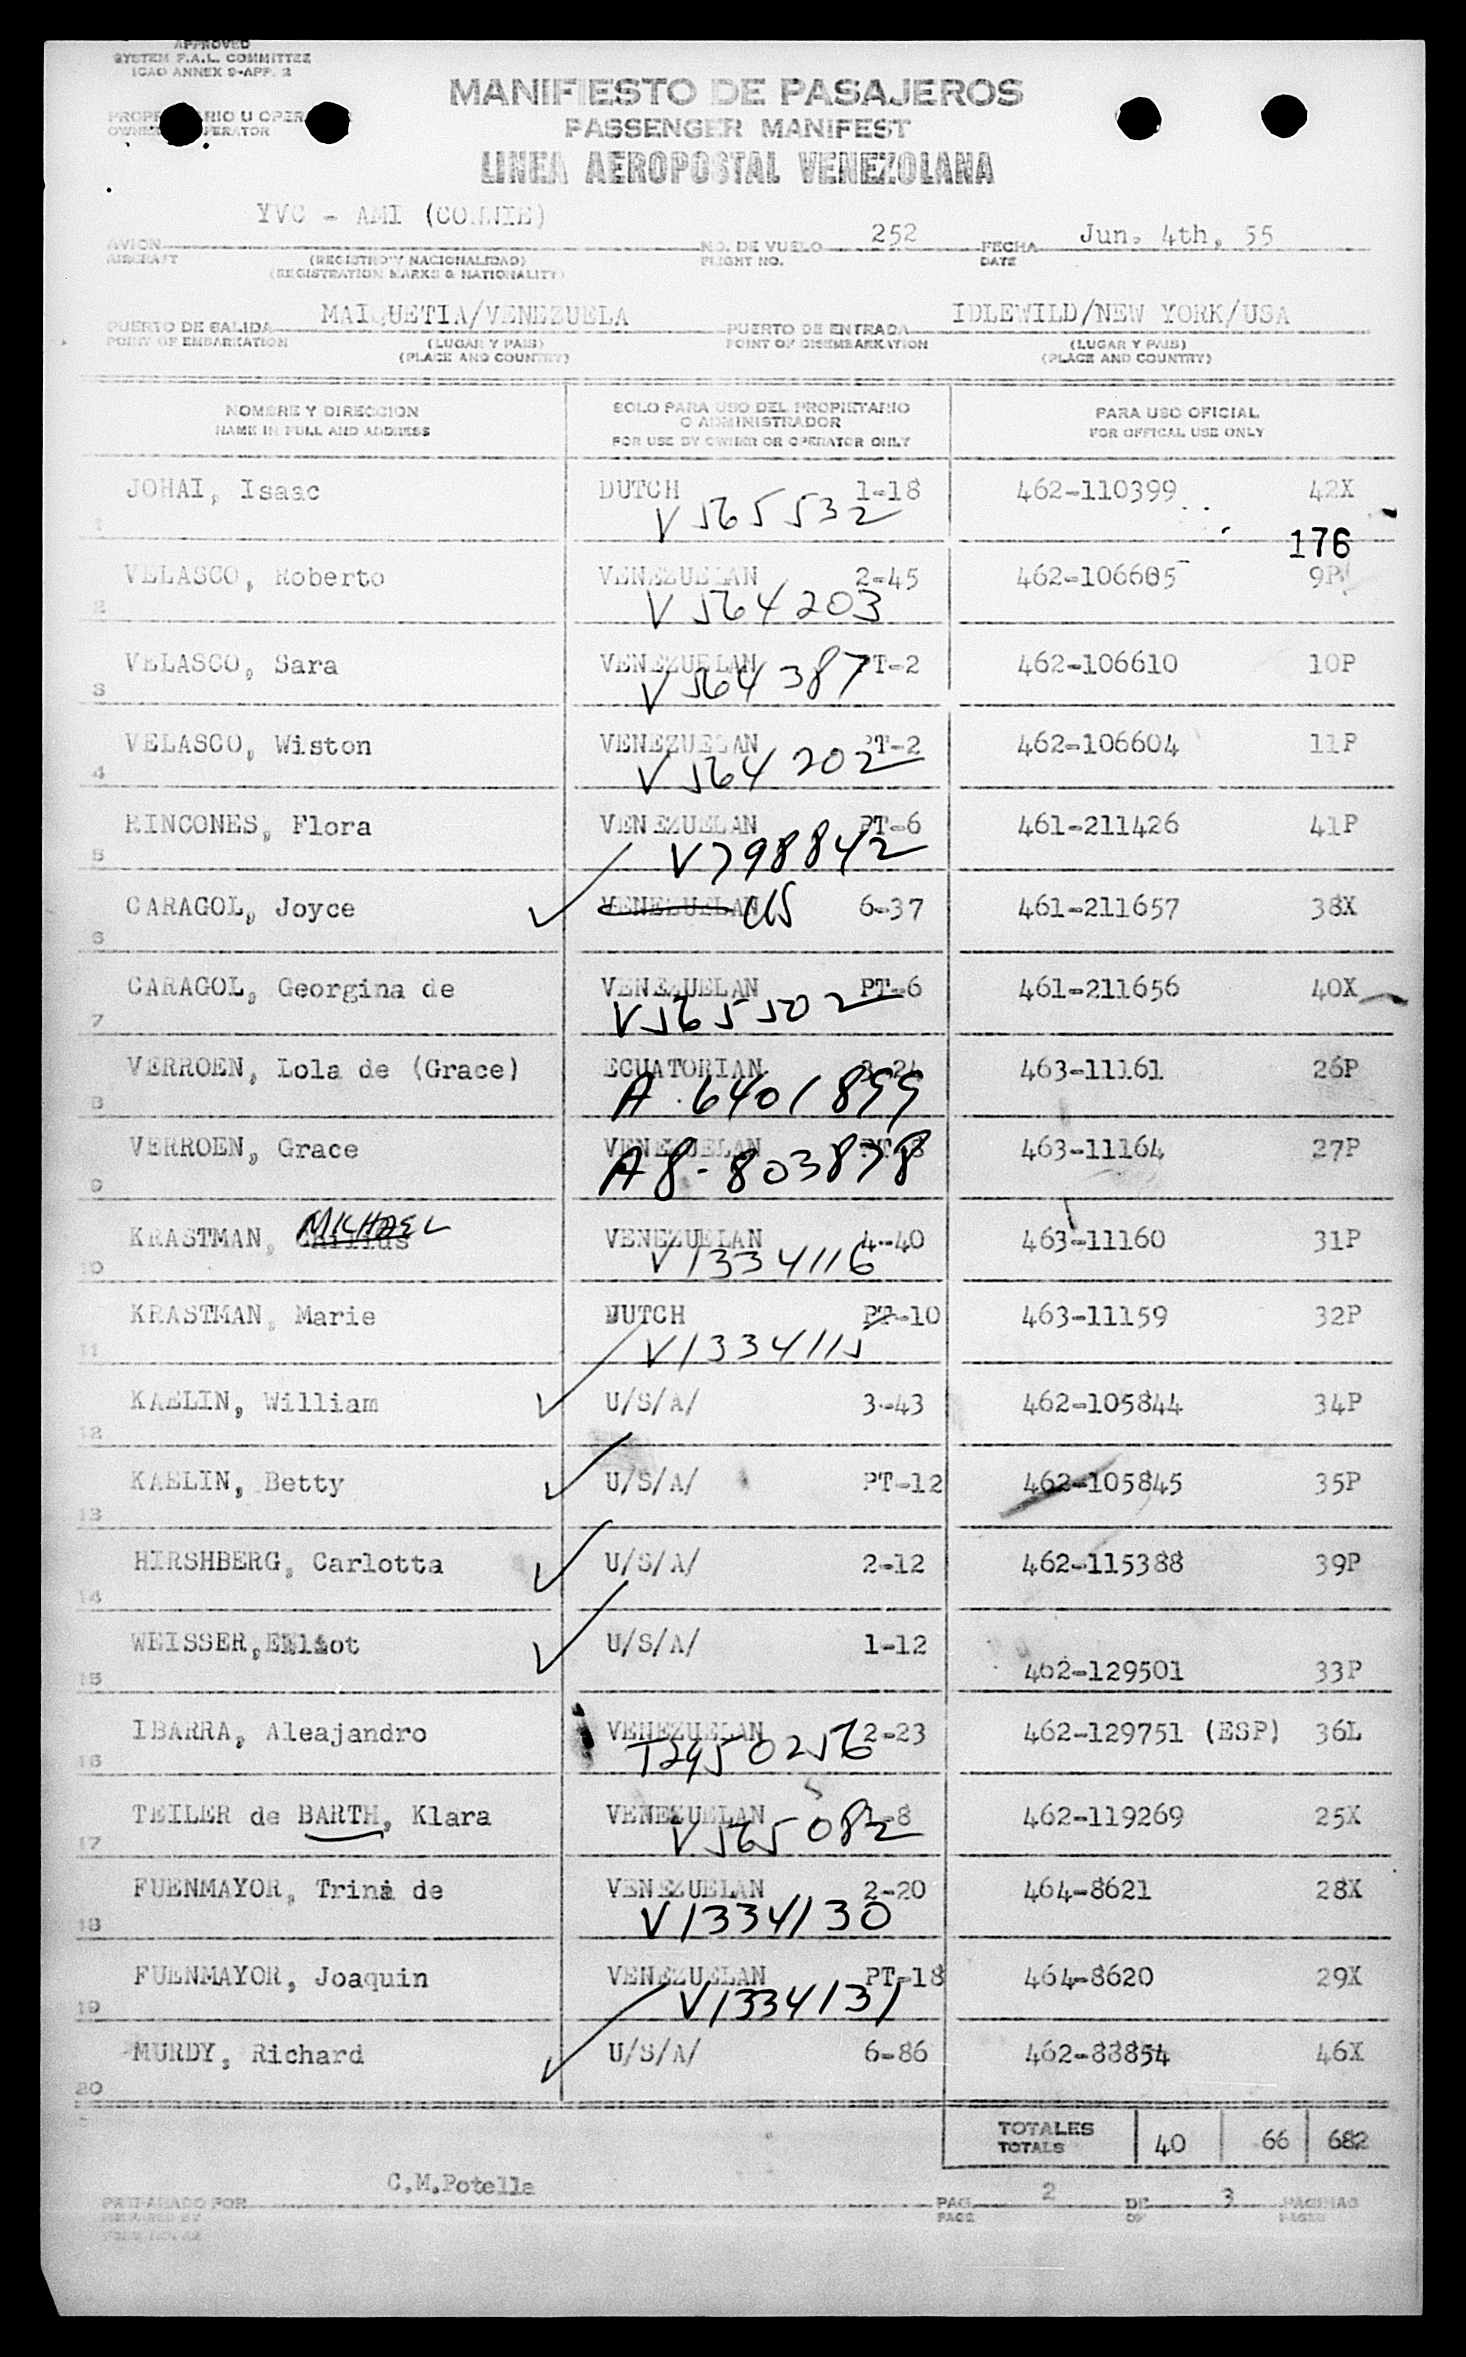 APPROVED
SYSTEM F.A.L. COMMITTEE
ICAO ANNEX 9-APP. 2
MANIFIESTO DE PASAJEROS
PASSENGER MANIFEST
LINEA AEROPOSTAL VENEZOLANA
YVC - AMI (CONNIE) 252 Jun. 4th, 55
AVION NO. DE VUELO FECHA
AIRCRAFT (REGISTRO Y NACIONALIDAD) FLIGHT NO. DATE
(REGISTRATION MARKS & NATIONALITY)
MAIQUETIA/VENEZUELA IDLEWILD/NEW YORK/USA
PUERTO DE SALIDA PUERTO DE ENTRADA
POINT OF EMBARKATION (LUGAR Y PAIS) POINT OF DISEMBARKATION (LUGAR Y PAIS)
(PLACE AND COUNTRY) (PLACE AND COUNTRY)
NOMBRE Y DIRECCION SOLO PARA USO DEL PROPIETARIO O ADMINISTRADOR PARA USO OFICIAL
NAME IN FULL AND ADDRESS FOR USE BY OWNER OR OPERATOR ONLY FOR OFFICAL USE ONLY
JOHAI, Isaac DUTCH 1-18 462-110399 42X
1 V 565532
176
VELASCO, Roberto VENEZUELAN 2-45 462-106605 9P
2 V 564203
VELASCO, Sara VENEZUELAN PT-2 462-106610 10P
3 V 564387
VELASCO, Wiston VENEZUELAN PT-2 462-106604 11P
4 V 564202
RINCONES, Flora VENEZUELAN PT-6 461-211426 41P
5 V798842
CARAGOL, Joyce VENEZUELAN US 6-37 461-211657 38X
6
CARAGOL, Georgina de VENEZUELAN PT-6 461-211656 40X
7 V565502
VERROEN, Lola de (Grace) ECUATORIAN 3-24 463-11161 26P
8 A 6401899
VERROEN, Grace VENEZUELAN PT-8 463-11164 27P
9 A8-803878
KRASTMAN, MICHAEL VENEZUELAN 4-40 463-11160 31P
10 V1334116
KRASTMAN, Marie DUTCH PT-10 463-11159 32P
11 V1334115
KAELIN, William U/S/A/ 3-43 462-105844 34P
12
KAELIN, Betty U/S/A/ PT-12 462-105845 35P
13
HIRSHBERG, Carlotta U/S/A/ 2-12 462-115388 39P
14
WEISSER, Elliot U/S/A/ 1-12
15 462-129501 33P
IBARRA, Aleajandro VENEZUELAN 2-23 462-129751 (ESP) 36L
16 T2950256
TEILER de BARTH, Klara VENEZUELAN -8 462-119269 25X
17 V565082
FUENMAYOR, Trina de VENEZUELAN 2-20 464-8621 28X
18 V1334130
FUENMAYOR, Joaquin VENEZUELAN PT-18 464-8620 29X
19 V1334131
MURDY, Richard U/S/A/ 6-86 462-83854 46X
20
TOTALES
TOTALS 40 66 682
C.M.Potella
PREPARADO POR PAG. 2 DE 3 PAGINAS
PREPARED BY PAGE OF PAGES